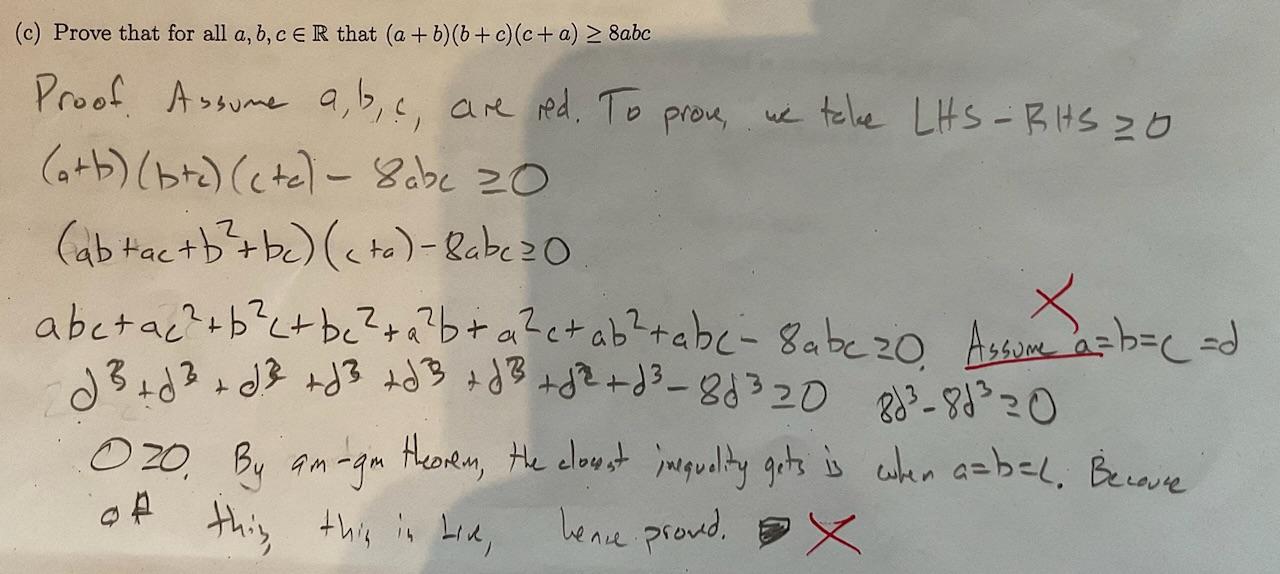 (c) Prove that for all a, b, c ∈ ℝ that (a + b)(b + c)(c + a) ≥ 8abc
Proof. Assume a, b, c, are real. To prove, we take LHS - RHS ≥ 0
(a+b)(b+c)(c+a) - 8abc ≥ 0
(ab + ac + b² + bc)(c+a) - 8abc ≥ 0
abc + ac² + b²c + bc² + a²b + a²c + ab² + abc - 8abc ≥ 0. Assume a=b=c=d
d³ + d³ + d³ + d³ + d³ + d³ + d³ + d³ - 8d³ ≥ 0 8d³ - 8d³ ≥ 0
0 ≥ 0. By am-gm theorem, the closest inequality gets is when a=b=c. Because
of this, this is true, hence proved.